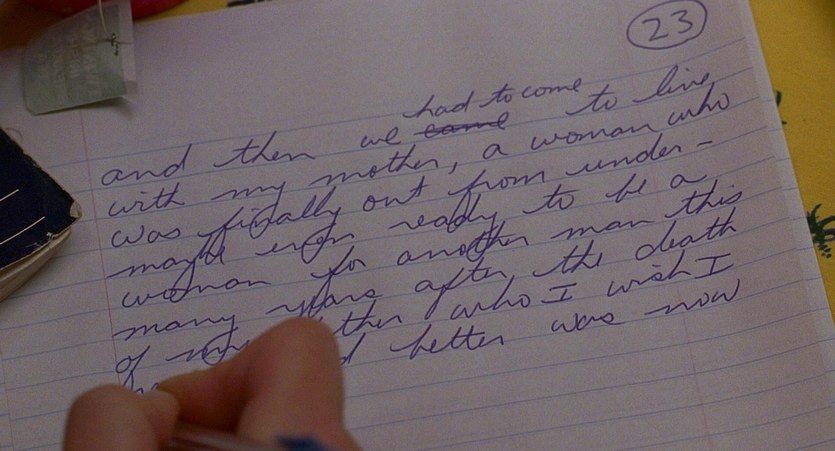 23
had to come
and then we came to live
with my mother, a woman who
was finally out from under-
maybe even ready to be a
woman for another man this
many years after the death
of my who I wish I
better was now